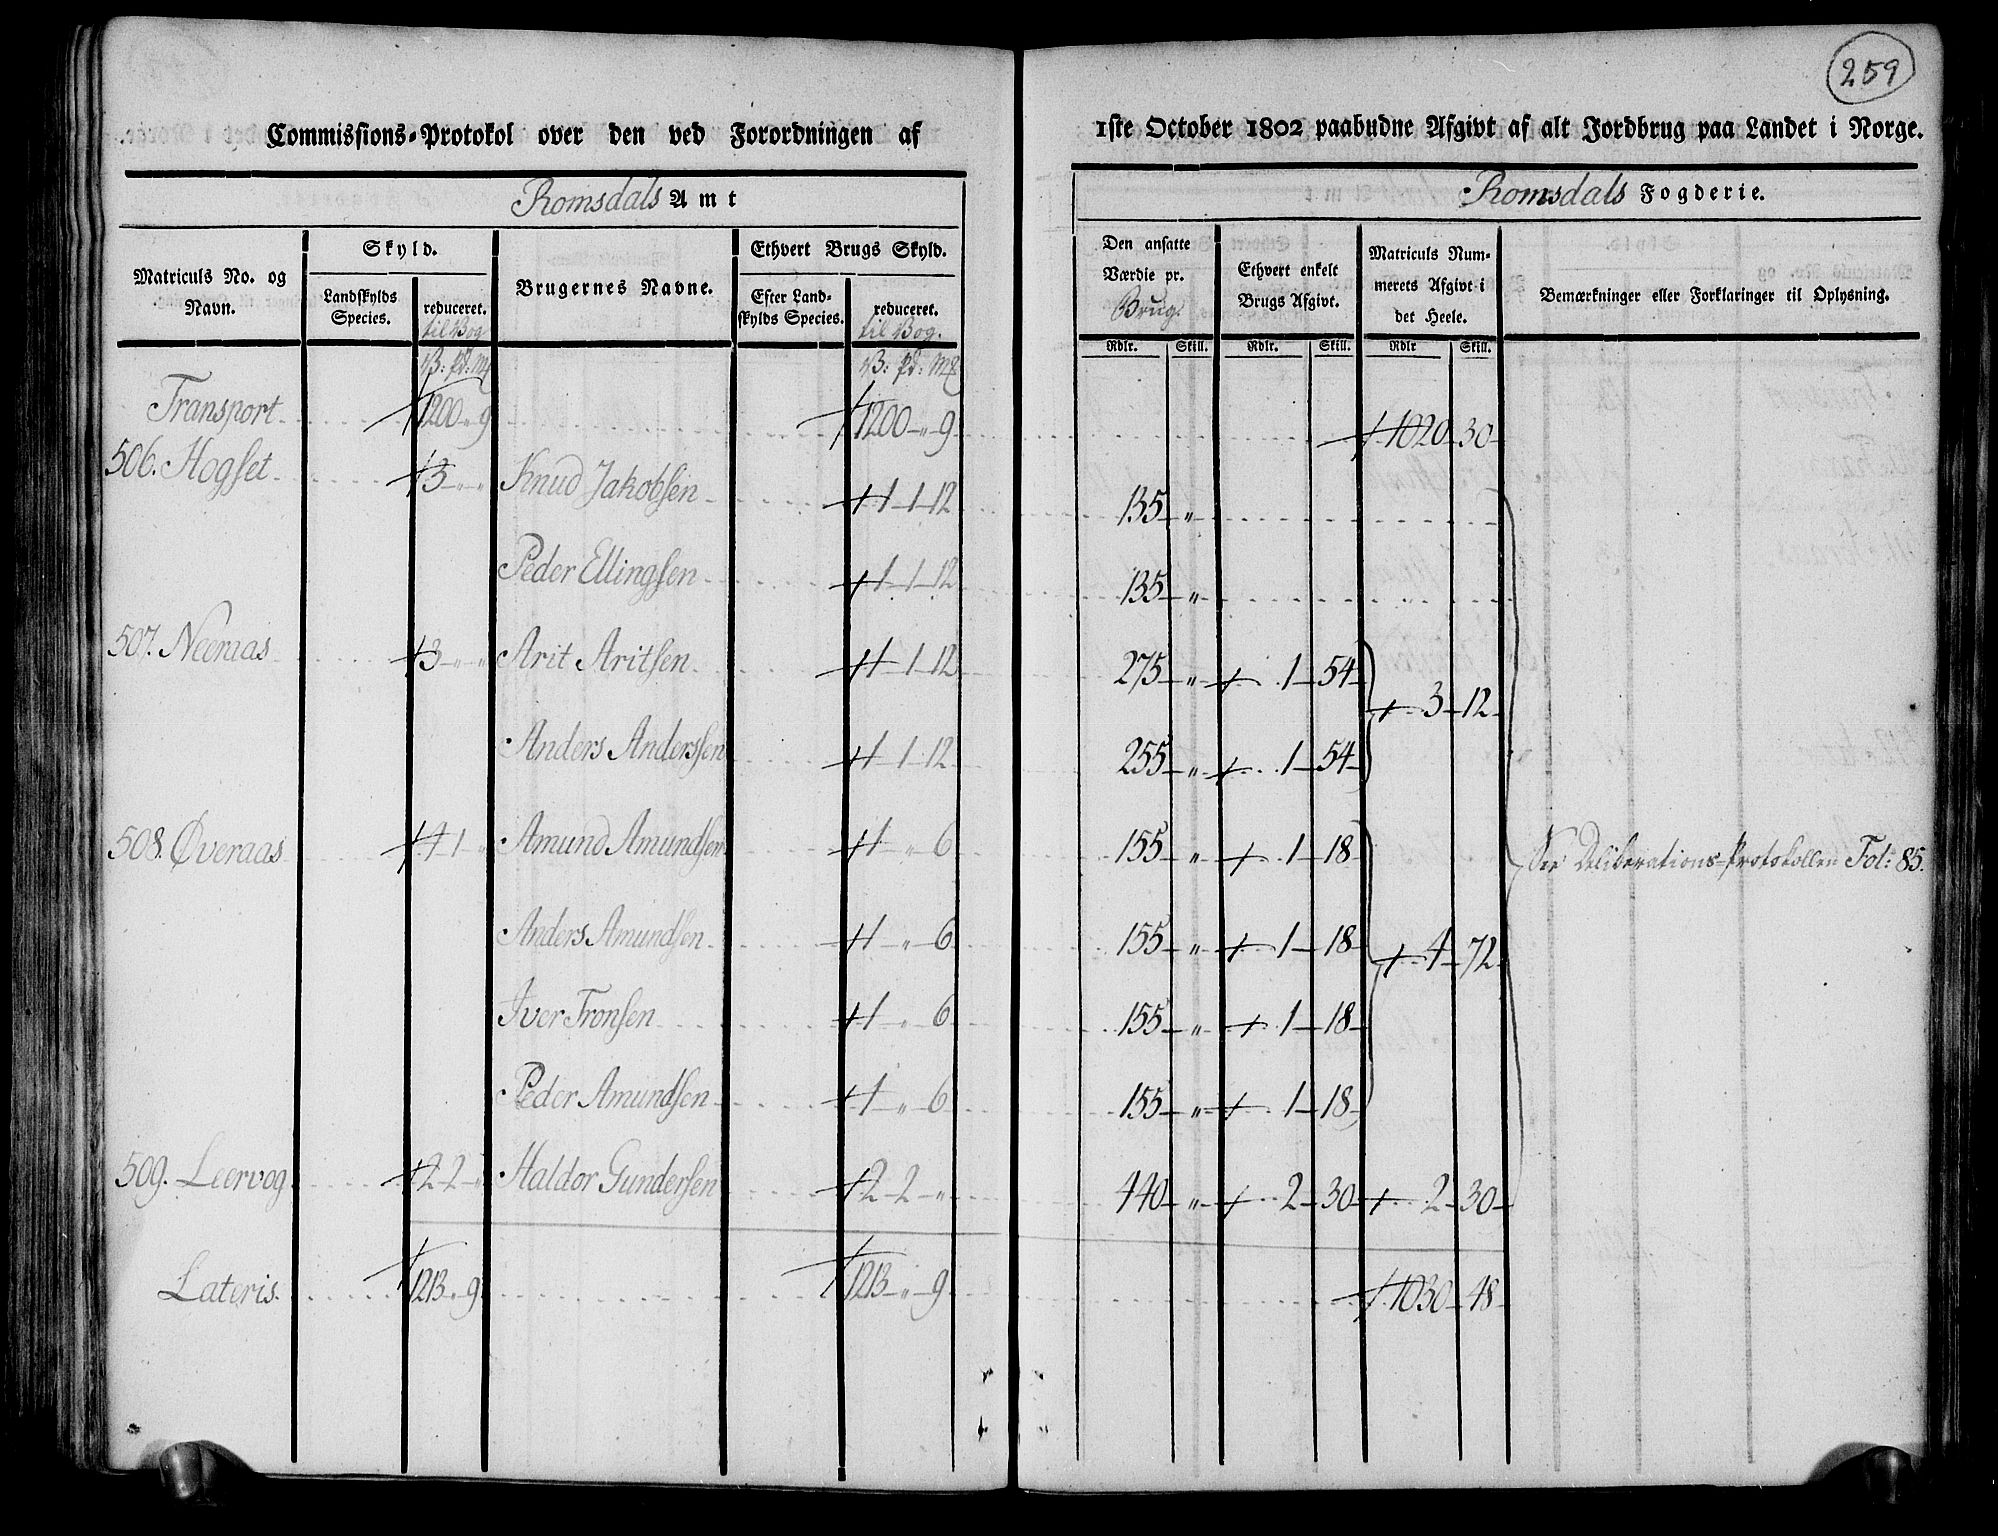 259
Commissions-Protokol over den ved Forordningen af 1ste October 1802 paabudne Afgivt af alt Jordbrug paa Landet i Norge.
Romsdals Amt
Romsdals Fogderie.
Matriculs No. og Navn.
Skyld.
Landskylds Species.
reduceret. til Bog
Brugernes Navne.
Ethvert Brugs Skyld.
Efter Landskylds Species.
reduceret. til Bog.
Den ansatte Værdie pr. Brug.
Ethvert enkelt Brugs Afgivt.
Matriculs Nummerets Afgivt i det Heele.
Bemærkninger eller Forklaringer til Oplysning.
Rdlr. Skill. Rdlr. Skill. Rdlr Skill.
B: pd: Mk B: pd: Mk
Transport 1200 „ 9 1200 „ 9 1020 30
506. Hogset 3 „ „ Knud Jakobsen 1 1 12 135 „
Peder Ellingsen 1 1 12 135 „
507. Neeraas 3 „ „ Arit Aritsen 1 1 12 275 „ 1 54
3 12
Anders Anderssen 1 1 12 255 „ 1 54
508. Øveraas 4 1 „ Amund Amundsen 1 „ 6 155 „ 1 18
See Deliberations-Protokollen Fol: 85.
Anders Amundsen 1 „ 6 155 „ 1 18 4 72
Iver Tronsen 1 „ 6 155 „ 1 18
Peder Amundsen 1 „ 6 155 „ 1 18
509. Leervog 2 2 „ Haldor Gundersen 2 2 „ 440 „ 2 30 2 30
Lateris 1213 „ 9 1213 „ 9 1030 48